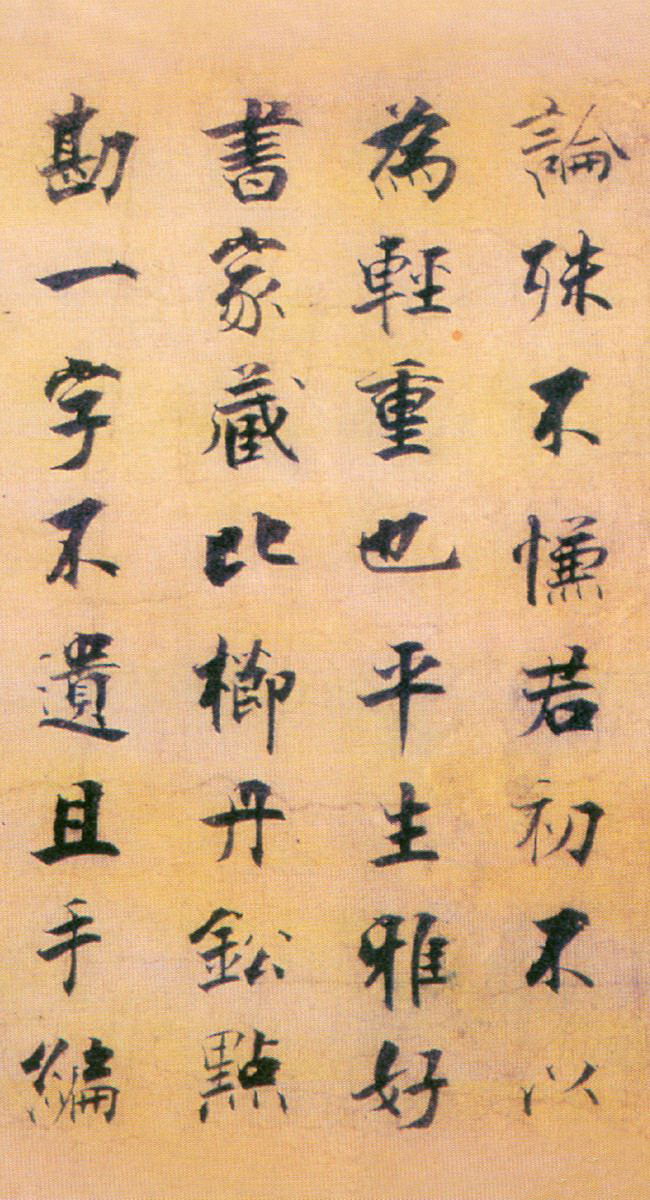 論殊不慊若初不以
為輕重也平生雅好
書家藏比櫛丹鈆點
勘一字不遺且手編